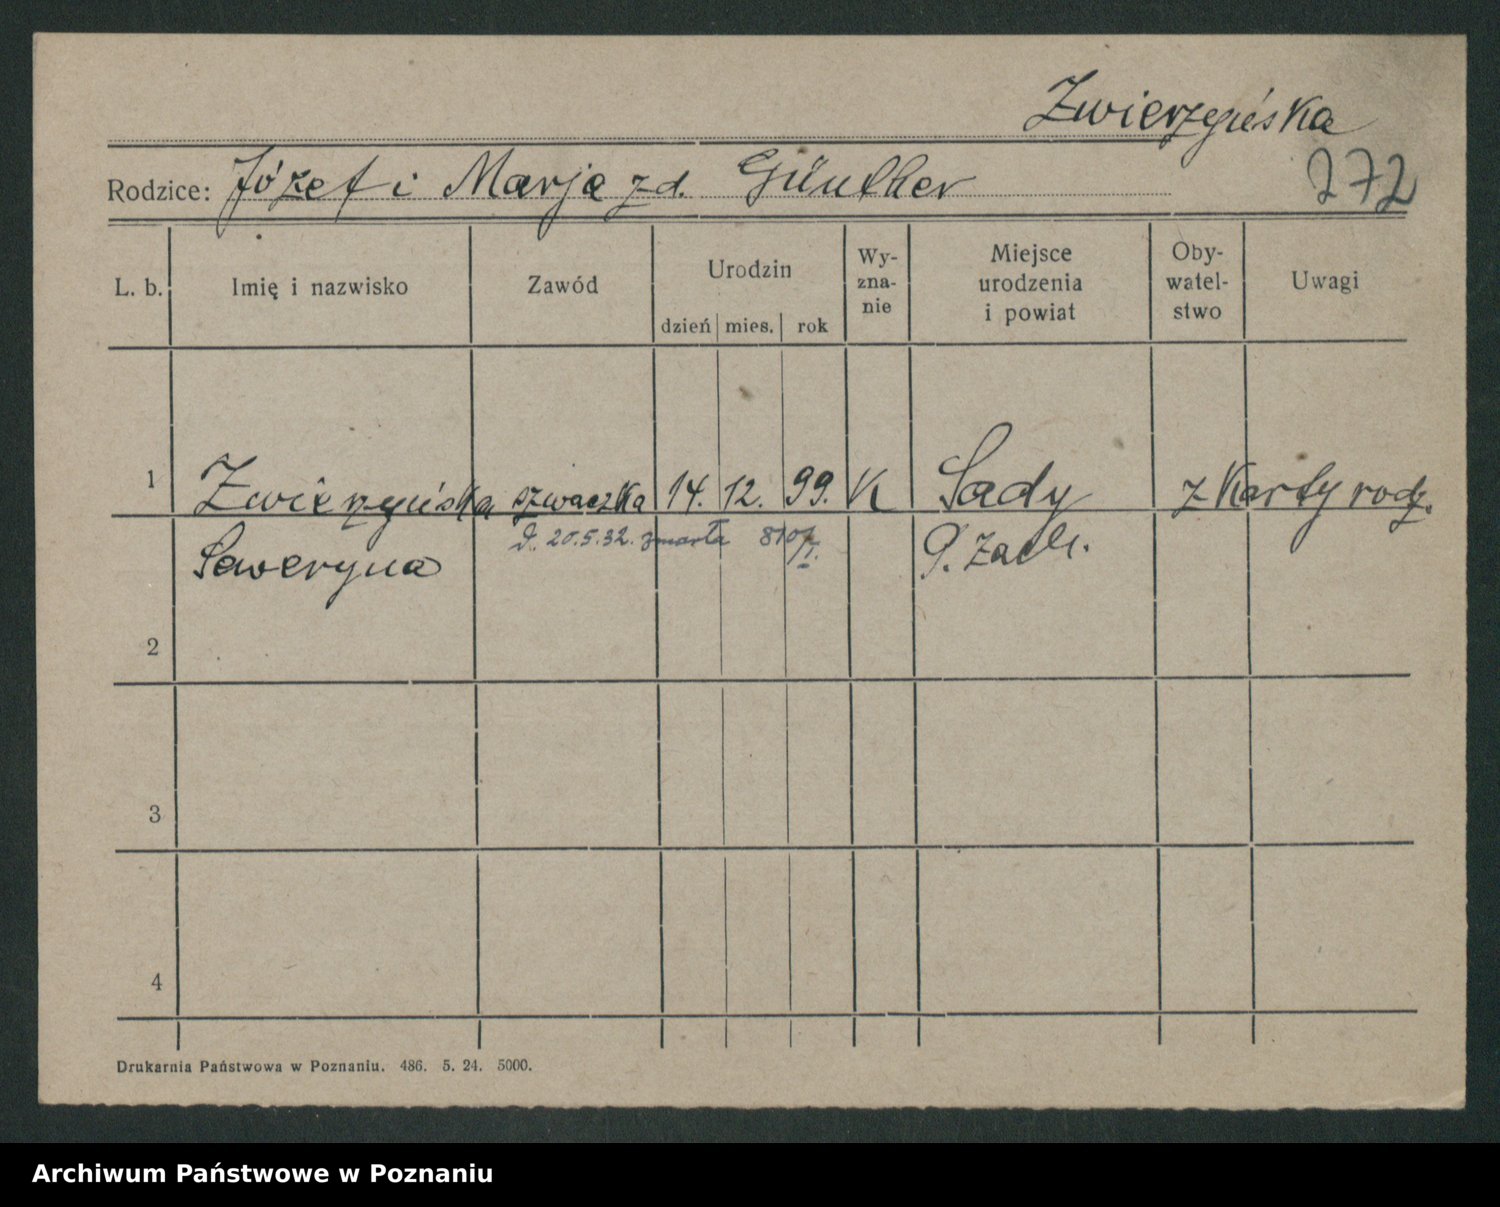 Zwierzyńska
272
Rodzice: Józef i Marja zd. Günther
L. b. Imię i nazwisko Zawód Urodzin dzień mies. rok Wy-zna-nie Miejsce urodzenia i powiat Oby-watel-stwo Uwagi
1 Zwierzyńska szwaczka 14. 12. 99. K Sady z Karty rodz.
Seweryna D. 20.5.32. zmarła P. Zach.
2
3
4
Drukarnia Państwowa w Poznaniu. 486. 5. 24. 5000.
Archiwum Państwowe w Poznaniu